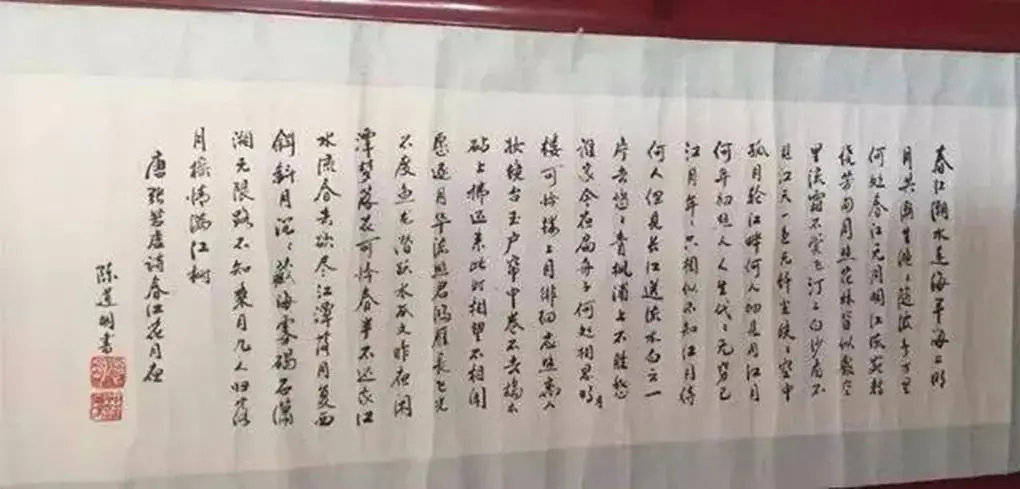 春江潮水连海平海上明
月共潮生滟々随波千万里
何处春江无月明江流宛转
绕芳甸月照花林皆似霰空
里流霜不觉飞汀上白沙看不
见江天一色无纤尘皎々空中
孤月轮江畔何人初见月江月
何年初照人人生代々无穷已
江月年々只相似不知江月待
何人但见长江送流水白云一
片去悠々青枫浦上不胜愁
谁家今夜扁舟子何处相思明月
楼可怜楼上月徘徊应照离人
妆镜台玉户帘中卷不去捣衣
砧上拂还来此时相望不相闻
愿逐月华流照君鸿雁长飞光
不度鱼龙潜跃水成文昨夜闲
潭梦落花可怜春半不还家江
水流春去欲尽江潭落月复西
斜斜月沉々藏海雾碣石潇
湘无限路不知乘月几人归落
月摇情满江树
唐张若虚诗春江花月夜
陈道明书